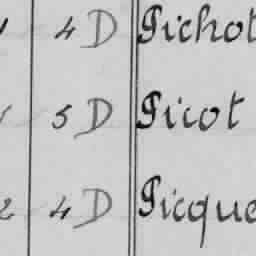 4 D Pichot
5 D Picot
2 4 D Picque